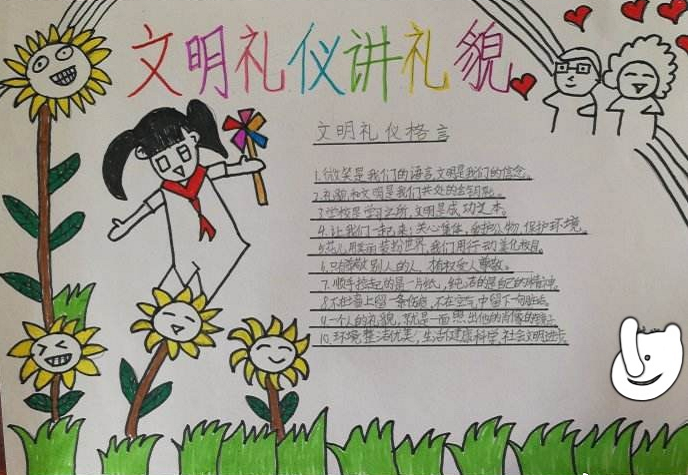 文明礼仪讲礼貌
文明礼仪格言
1.微笑是我们的语言,文明是我们的信念。
2.礼貌和文明是我们共处的金钥匙。
3.学校是学习之所,文明是成功之本。
4.让我们一起来:关心集体,爱护公物,保护环境。
5.花儿用美丽装扮世界,我们用行动美化校园。
6.只有尊敬别人的人,才有权受人尊敬。
7.顺手捡起的是一片纸,纯洁的是自己的精神。
8.不在墙上留一条伤痕,不在空气中留下一句脏话。
9.一个人的礼貌,就是一面照出他的肖像的镜子。
10.环境整洁优美,生活健康科学,社会文明进步。